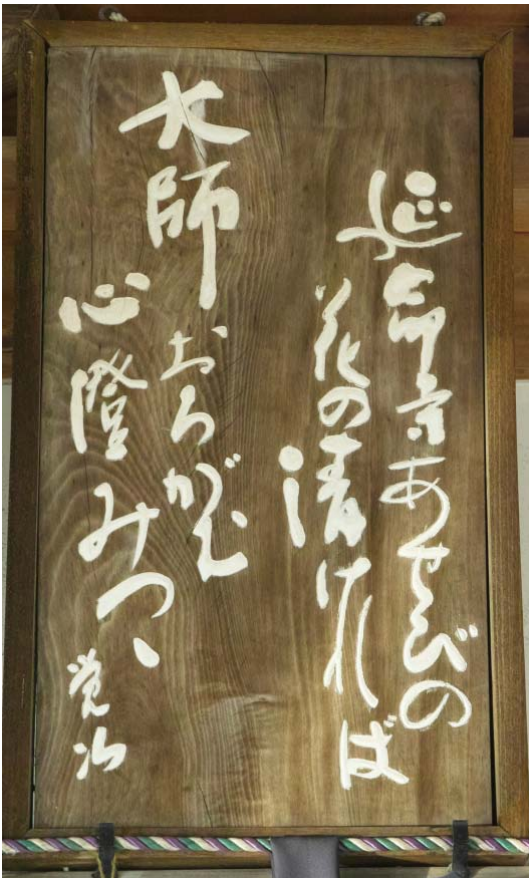 延命寺あせびの
花の清ければ
大師おろがむ
心澄みつゝ
覚治